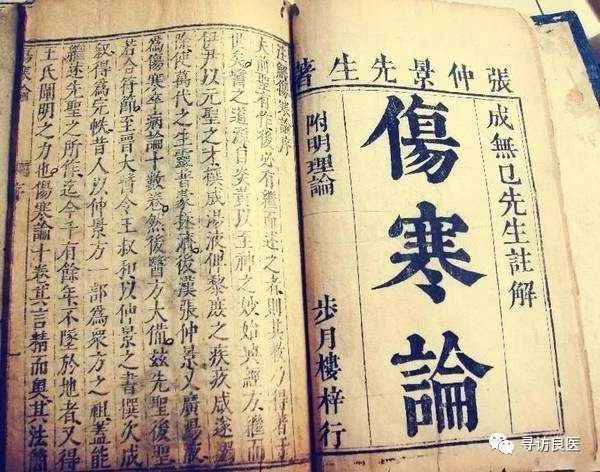 張仲景先生著
成無已先生註解
傷寒論
附明理論
步月樓梓行
註解傷寒論序
夫前聖有作後必有繼而述之者則其教乃得著于
世矣醫之道源自炎黃以至神之妙始興經方繼而
伊尹以元聖之才撰成湯液俾黎庶之疾疢咸遂蠲
除使萬代之生靈普蒙拯濟後漢張仲景又廣湯液
為傷寒卒病論十數卷然後醫方大備茲先聖後聖
若合符節至晉太醫令王叔和以仲景之書撰次成
叙得為完帙昔人以仲景方一部為眾方之祖蓋能
繼述先聖之所作迄今千有餘年不墜於地者又得
王氏闡明之力也傷寒論十卷其言精而奧其法簡
傷寒論
寻访良医